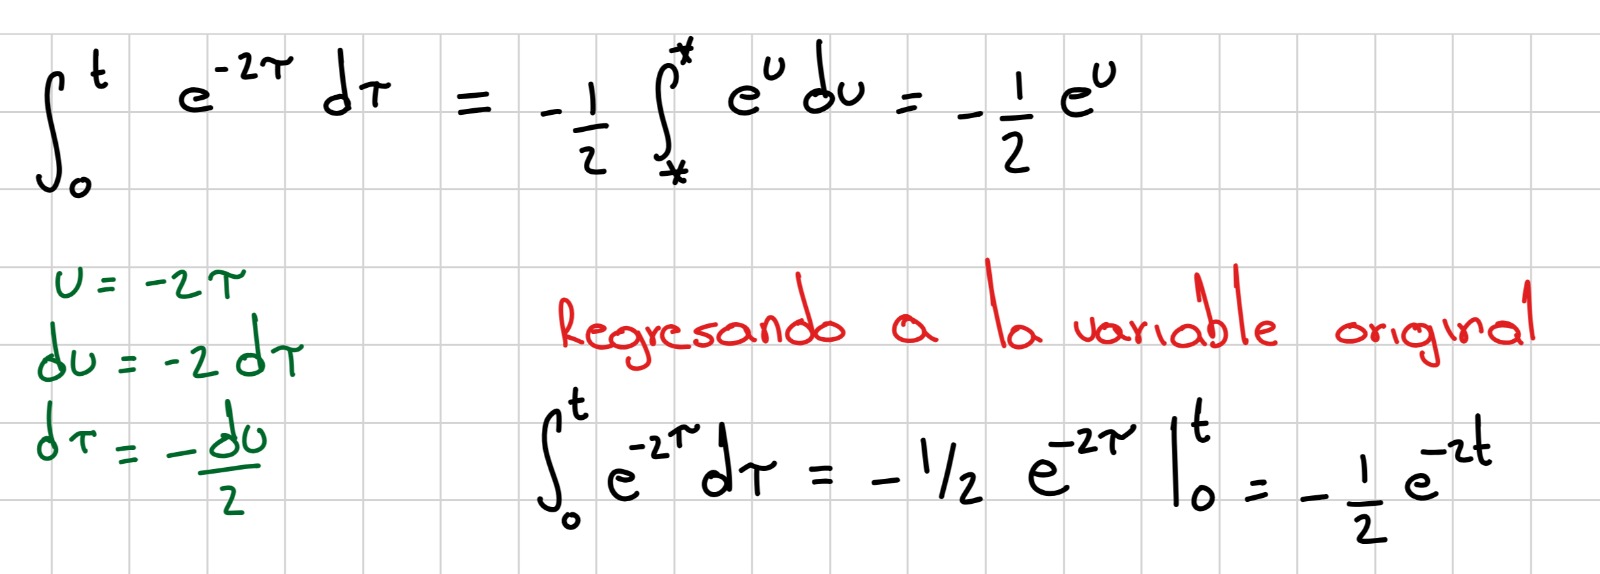 ∫₀ᵗ e^{-2τ} dτ = -1/2 ∫_*^* e^u du = -1/2 e^u
u = -2τ
du = -2 dτ
dτ = -du/2
Regresando a la variable original
∫₀ᵗ e^{-2τ} dτ = -1/2 e^{-2τ} |₀ᵗ = -1/2 e^{-2t}